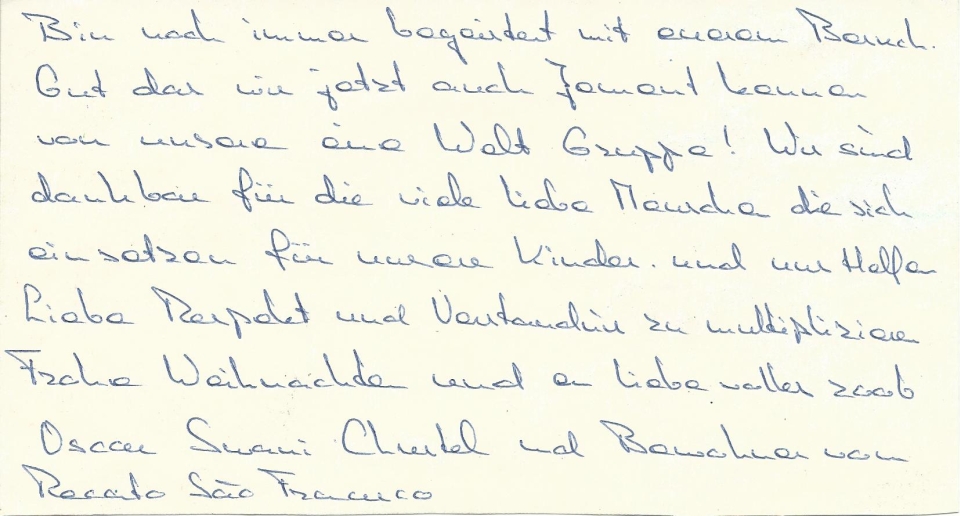 Bin noch immer begeistert mit eurem Besuch.
Gut das wir jetzt auch Jemant kennen
von unsere eine Welt Gruppe! Wir sind
dankbar für die viele liebe Menschen die sich
einsetzen für unsere Kinder. und uns Helfen
Liebe Respekt und Verständnis zu multiplizieren
Frohe Weihnachten und ein liebe voller 2006
Oscar Swami Christel und Bewohner vom
Recanto São Francisco